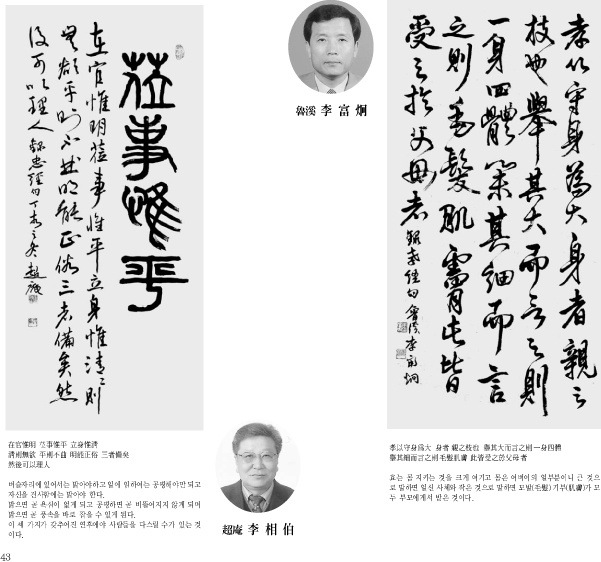 莅事惟平
在官惟明莅事惟平立身惟清〻則
無欲平則不曲明能正俗三者備矣然
後可以理人 錄忠經句丁亥之冬 超庵
魯溪 李富炯
孝以守身爲大身者親之
枝也擧其大而言之則
一身四體擧其細而言
之則毛髮肌膚此皆
受之於父母者 錄孝經句 魯溪 李富炯
在官惟明 莅事惟平 立身惟淸
淸則無欲 平則不曲 明能正俗 三者備矣
然後可以理人
벼슬자리에 있어서는 밝아야하고 일에 임하여는 공평해야만 되고
자신을 건사함에는 맑아야 한다.
맑으면 곧 욕심이 없게 되고 공평하면 곧 비뚤어지지 않게 되며
밝으면 곧 풍속을 바로 잡을 수 있게 된다.
이 세 가지가 갖추어진 연후에야 사람들을 다스릴 수가 있는 것
이다.
超庵 李相伯
孝以守身爲大 身者 親之枝也 擧其大而言之則一身四體
擧其細而言之則毛髮肌膚 此皆受之於父母者
효는 몸 지키는 것을 크게 여기고 몸은 어버이의 일부분이니 큰 것으
로 말하면 일신 사체와 작은 것으로 말하면 모발(毛髮) 기부(肌膚)가 모
두 부모에게서 받은 것이다.
43